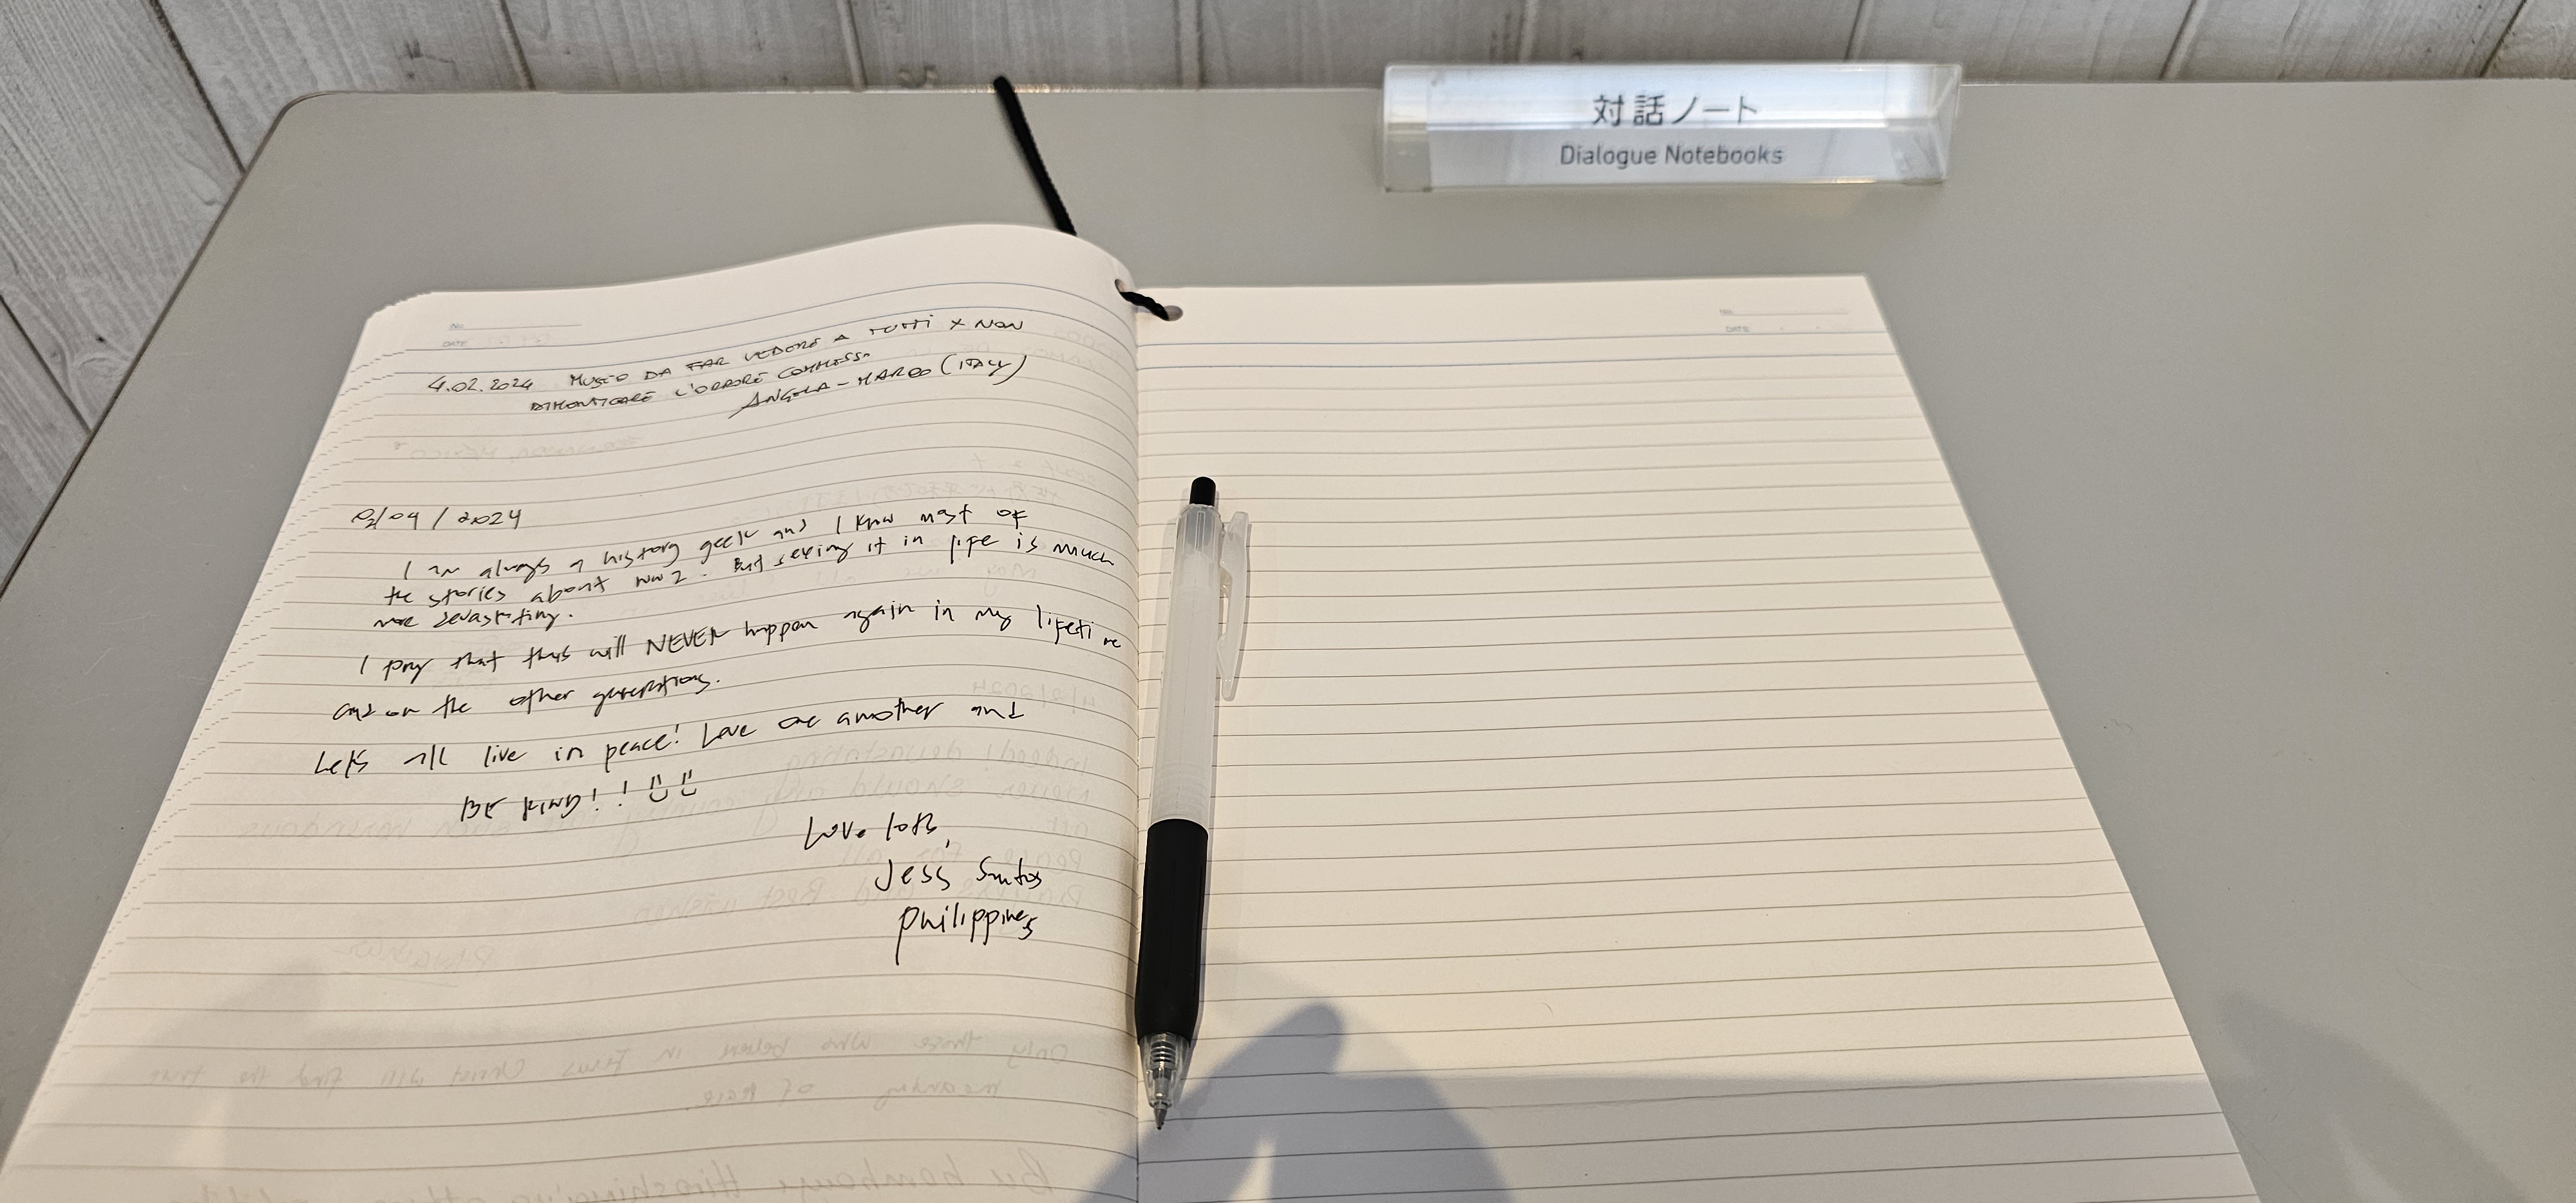 対話ノート
Dialogue Notebooks
No.
DATE
4.02.2024 MUSEO DA FAR VEDERE A TUTTI X NON
DIMENTICARE L'ORRORE COMMESSO
ANGELA - MARCO (ITALY)
02/04/2024
I am always a history geek and I know most of
the stories about WW2. But seeing it in life is much
more devastating.
I pray that this will NEVER happen again in my lifetime
and on the other generations.
Let's all live in peace! Love one another and
BE KIND!!
Love lots,
Jess Santos
Philippines
No.
DATE